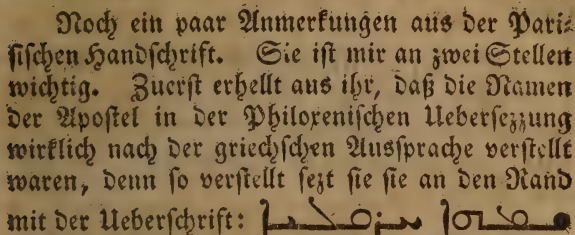 Noch ein paar Anmerkungen aus der Pari⸗
ſiſchen Handſchrift. Sie iſt mir an zwei Stellen
wichtig. Zuerſt erhellt aus ihr, daß die Namen
der Apoſtel in der Philoxeniſchen Ueberſezzung
wirklich nach der griechſchen Ausſprache verſtellt
waren, denn ſo verſtellt ſezt ſie ſie an den Rand
mit der Ueberſchrift: